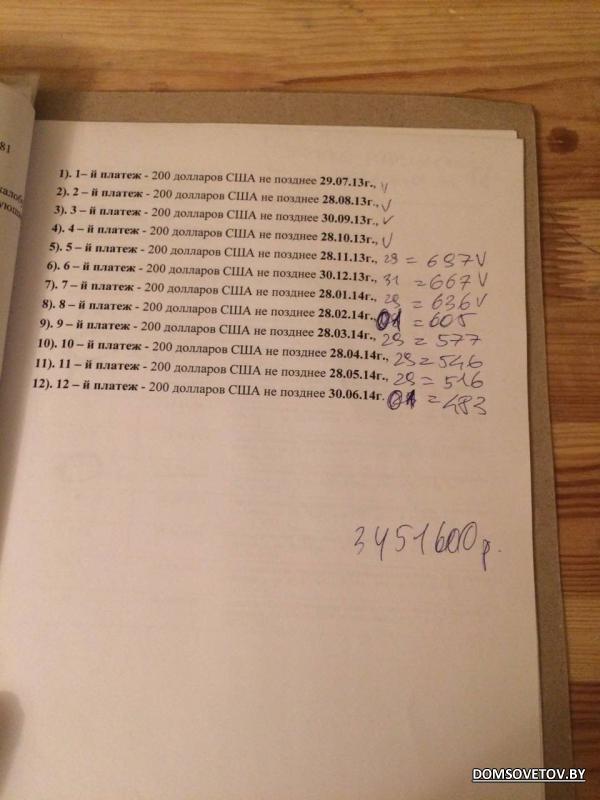 81
1). 1– й платеж - 200 долларов США не позднее 29.07.13г., v
2). 2 – й платеж - 200 долларов США не позднее 28.08.13г., v
3). 3 – й платеж - 200 долларов США не позднее 30.09.13г., v
4). 4 – й платеж - 200 долларов США не позднее 28.10.13г., v
5). 5 – й платеж - 200 долларов США не позднее 28.11.13г., 29 = 697 v
6). 6 – й платеж - 200 долларов США не позднее 30.12.13г., 31 = 667 v
7). 7 – й платеж - 200 долларов США не позднее 28.01.14г., 29 = 636 v
8). 8 – й платеж - 200 долларов США не позднее 28.02.14г., 01 = 605
9). 9 – й платеж - 200 долларов США не позднее 28.03.14г., 29 = 577
10). 10 – й платеж - 200 долларов США не позднее 28.04.14г., 29 = 546
11). 11 – й платеж - 200 долларов США не позднее 28.05.14г., 29 = 516
12). 12 – й платеж - 200 долларов США не позднее 30.06.14г. 01 = 483
3451600 р.
DOMSOVETOV.BY